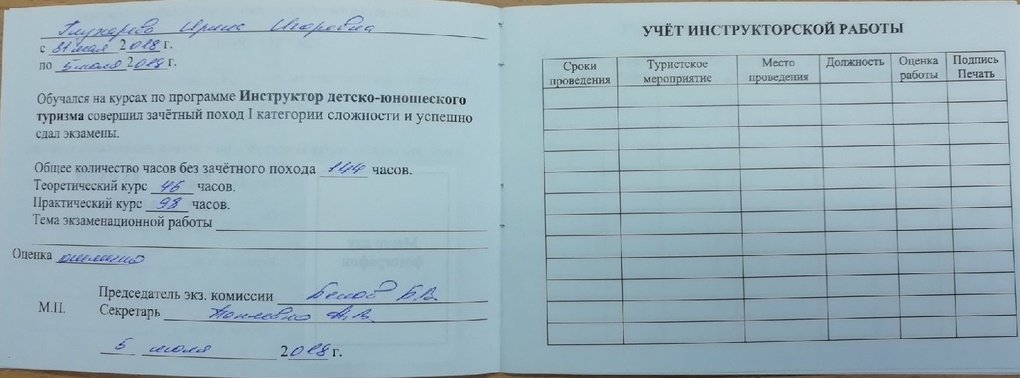 Глухарева Ирина Игоревна
с 31 мая 2018 г.
по 5 июля 2018 г.
Обучался на курсах по программе Инструктор детско-юношеского
туризма совершил зачётный поход I категории сложности и успешно
сдал экзамены.
Общее количество часов без зачётного похода 144 часов.
Теоретический курс 46 часов.
Практический курс 98 часов.
Тема экзаменационной работы
Оценка отлично
Председатель экз. комиссии Белов Б.В.
М.П. Секретарь А.В.
5 июля 2018 г.
УЧЁТ ИНСТРУКТОРСКОЙ РАБОТЫ
Сроки проведения
Туристское мероприятие
Место проведения
Должность
Оценка работы
Подпись Печать